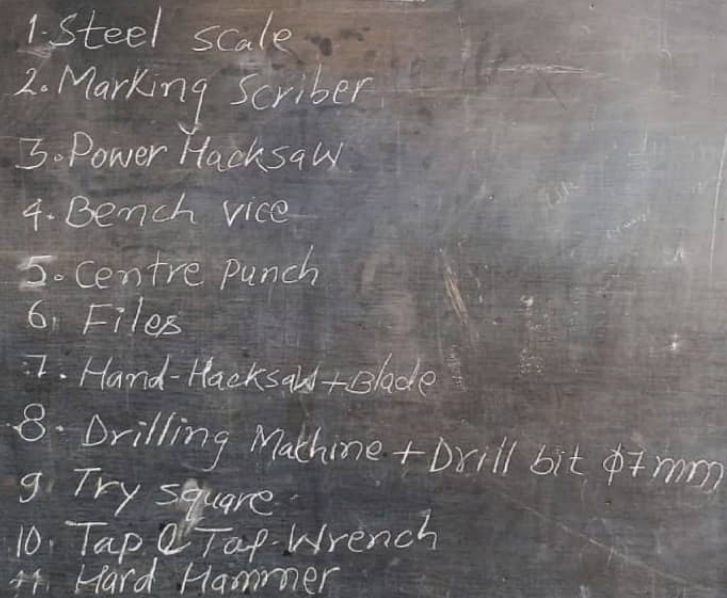 1. Steel scale
2. Marking Scriber
3. Power Hacksaw
4. Bench vice
5. Centre Punch
6. Files
7. Hand-Hacksaw+Blade
8. Drilling Machine + Drill bit φ7mm
9. Try square
10. Tap & Tap-Wrench
11. Hard Hammer